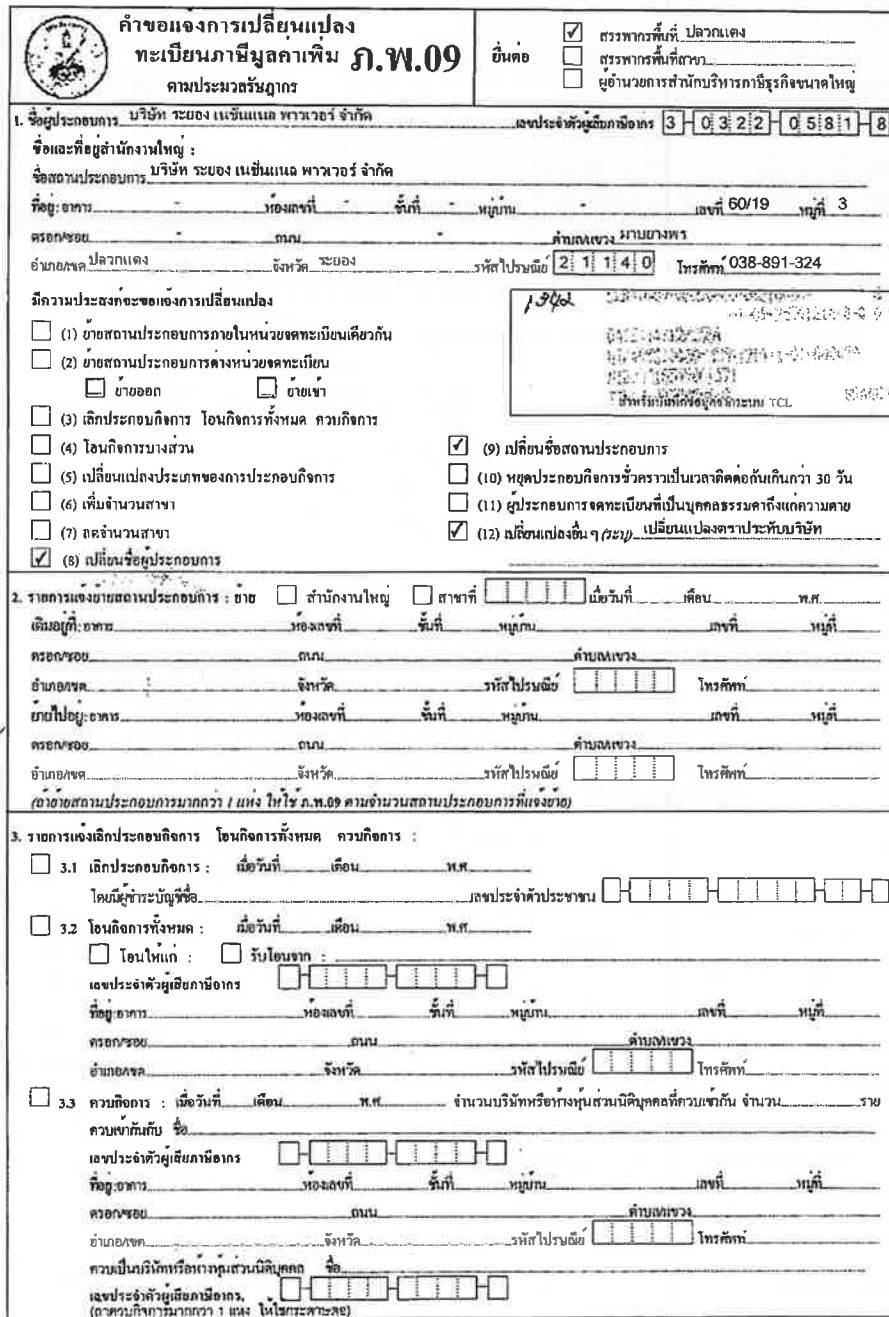 คำขอแจ้งการเปลี่ยนแปลง
ทะเบียนภาษีมูลค่าเพิ่ม ภ.พ.09
ตามประมวลรัษฎากร
ยื่นต่อ
☑ สรรพากรพื้นที่ ปลวกแดง
☐ สรรพากรพื้นที่สาขา
☐ ผู้อำนวยการสำนักบริหารภาษีธุรกิจขนาดใหญ่
1. ชื่อผู้ประกอบการ บริษัท ระยอง เนชั่นแนล พาวเวอร์ จำกัด เลขประจำตัวผู้เสียภาษีอากร 3-0322-0581-8
ชื่อและที่อยู่สำนักงานใหญ่ :
ชื่อสถานประกอบการ บริษัท ระยอง เนชั่นแนล พาวเวอร์ จำกัด
ที่อยู่: อาคาร - ห้องเลขที่ - ชั้นที่ - หมู่บ้าน - เลขที่ 60/19 หมู่ที่ 3
ตรอก/ซอย - ถนน - ตำบล/แขวง มาบยางพร
อำเภอ/เขต ปลวกแดง จังหวัด ระยอง รหัสไปรษณีย์ 21140 โทรศัพท์ 038-891-324
มีความประสงค์จะขอแจ้งการเปลี่ยนแปลง
1342
สำหรับบันทึกข้อมูลจากระบบ TCL
☐ (1) ย้ายสถานประกอบการภายในหน่วยจดทะเบียนเดียวกัน
☐ (2) ย้ายสถานประกอบการต่างหน่วยจดทะเบียน
☐ ย้ายออก ☐ ย้ายเข้า
☐ (3) เลิกประกอบกิจการ โอนกิจการทั้งหมด ควบกิจการ
☐ (4) โอนกิจการบางส่วน
☐ (5) เปลี่ยนแปลงประเภทของการประกอบกิจการ
☐ (6) เพิ่มจำนวนสาขา
☐ (7) ลดจำนวนสาขา
☑ (8) เปลี่ยนชื่อผู้ประกอบการ
☑ (9) เปลี่ยนชื่อสถานประกอบการ
☐ (10) หยุดประกอบกิจการชั่วคราวเป็นเวลาติดต่อกันเกินกว่า 30 วัน
☐ (11) ผู้ประกอบการจดทะเบียนที่เป็นบุคคลธรรมดาถึงแก่ความตาย
☑ (12) เปลี่ยนแปลงอื่น ๆ (ระบุ) เปลี่ยนแปลงตราประทับบริษัท
2. รายการแจ้งย้ายสถานประกอบการ : ย้าย ☐ สำนักงานใหญ่ ☐ สาขาที่ เมื่อวันที่ เดือน พ.ศ.
เดิมอยู่ที่: อาคาร ห้องเลขที่ ชั้นที่ หมู่บ้าน เลขที่ หมู่ที่
ตรอก/ซอย ถนน ตำบล/แขวง
อำเภอ/เขต จังหวัด รหัสไปรษณีย์ โทรศัพท์
ย้ายไปอยู่: อาคาร ห้องเลขที่ ชั้นที่ หมู่บ้าน เลขที่ หมู่ที่
ตรอก/ซอย ถนน ตำบล/แขวง
อำเภอ/เขต จังหวัด รหัสไปรษณีย์ โทรศัพท์
(ถ้าย้ายสถานประกอบการมากกว่า 1 แห่ง ให้ใช้ ภ.พ.09 ตามจำนวนสถานประกอบการที่แจ้งย้าย)
3. รายการแจ้งเลิกประกอบกิจการ โอนกิจการทั้งหมด ควบกิจการ :
☐ 3.1 เลิกประกอบกิจการ : เมื่อวันที่ เดือน พ.ศ.
โดยมีผู้ชำระบัญชีชื่อ เลขประจำตัวประชาชน
☐ 3.2 โอนกิจการทั้งหมด : เมื่อวันที่ เดือน พ.ศ.
☐ โอนให้แก่ : ☐ รับโอนจาก :
เลขประจำตัวผู้เสียภาษีอากร
ที่อยู่: อาคาร ห้องเลขที่ ชั้นที่ หมู่บ้าน เลขที่ หมู่ที่
ตรอก/ซอย ถนน ตำบล/แขวง
อำเภอ/เขต จังหวัด รหัสไปรษณีย์ โทรศัพท์
☐ 3.3 ควบกิจการ : เมื่อวันที่ เดือน พ.ศ. จำนวนบริษัทหรือห้างหุ้นส่วนนิติบุคคลที่ควบเข้ากัน จำนวน ราย
ควบเข้ากันกับ ชื่อ
เลขประจำตัวผู้เสียภาษีอากร
ที่อยู่: อาคาร ห้องเลขที่ ชั้นที่ หมู่บ้าน เลขที่ หมู่ที่
ตรอก/ซอย ถนน ตำบล/แขวง
อำเภอ/เขต จังหวัด รหัสไปรษณีย์ โทรศัพท์
ควบเป็นบริษัทหรือห้างหุ้นส่วนนิติบุคคล ชื่อ
เลขประจำตัวผู้เสียภาษีอากร
(ถ้าควบกิจการมากกว่า 1 แห่ง ให้ใช้กระดาษต่อ)